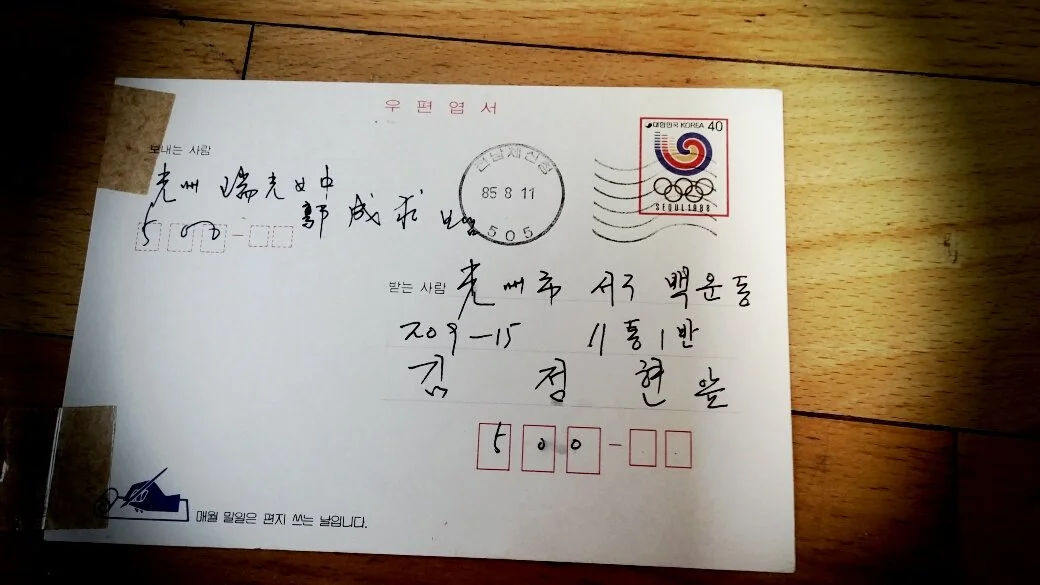 우편엽서
대한민국 KOREA 40
SEOUL 1988
전남체신청
85 8 11
505
보내는 사람
光州 瑞光女中
郭成求 보냄
500
받는 사람 光州市 서구 백운동
209-15 11통 1반
김정현 앞
500
매월 말일은 편지 쓰는 날입니다.